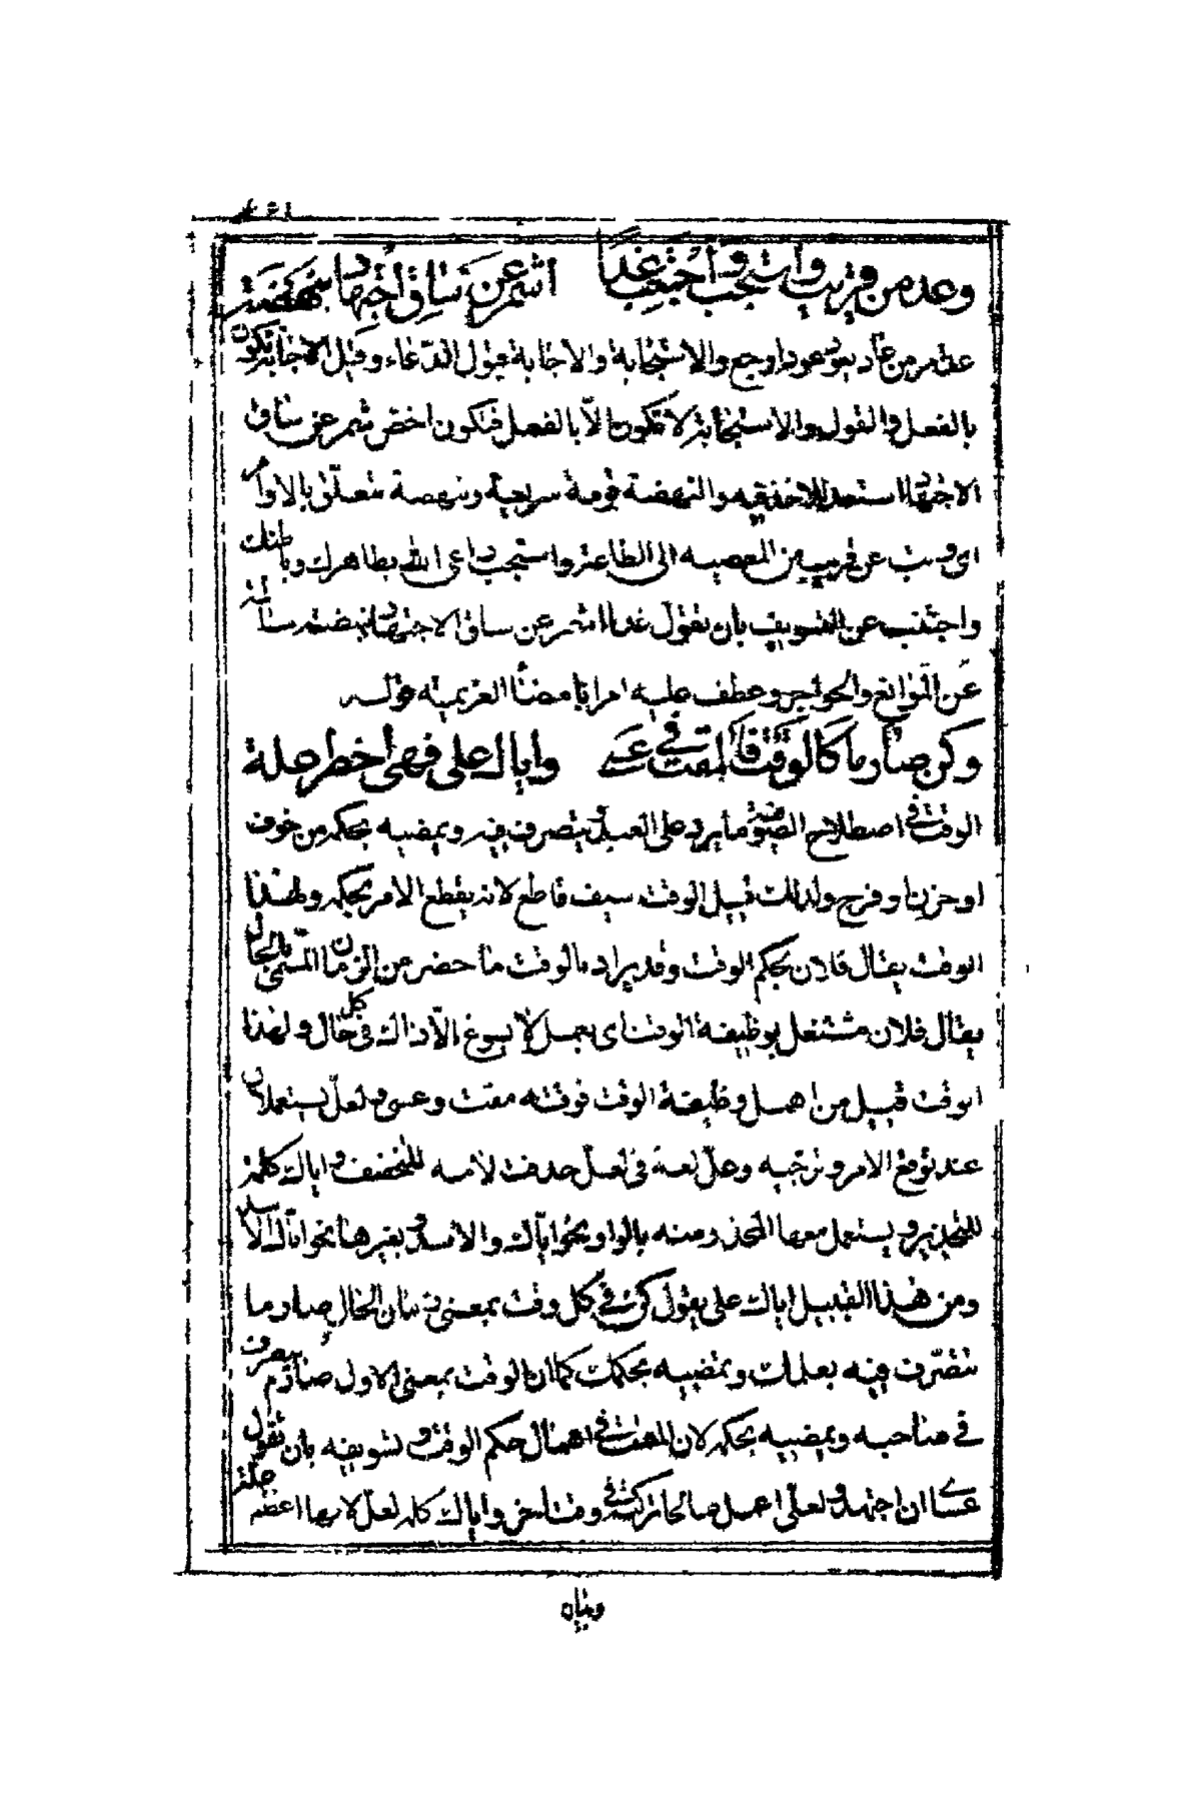 وعد من قريب واستجب واجتنب غدا أشمر عن ساق اجتهاد بنهضة
عد امر من عاد يعود عودا وجع والاستجابة والاجابة قبول الدعاء وقيل الاجابة تكون
بالفعل والقول والاستجابة لا تكون الا بالفعل فتكون اخص شمر عن ساق
الاجتهاد استعد للاخذ فيه والنهضة قومة سريعة وبنهضة متعلق بالاوامر
اى وتب عن قريب من المعصيه الى الطاعة واستجب داعى الله بظاهرك وباطنك
واجتنب عن التسويف بان تقول غدا اشمر عن ساق الاجتهاد بنهضة سالمة
عن الموانع والحواجز وعطف عليه امرا بامضاء العزيمة قوله
وكن صارما كالوقت فالمقت في عسى واياك على فهى أخطر علة
الوقت في اصطلاح الصوفية ما يرد على العبد ويتصرف فيه ويمضيه بحكمه من خوف
او حزن او فرح ولذلك قيل الوقت سيف قاطع لانه يقطع الامر بحكمه ولهذا
الوقت يقال فلان بحكم الوقت وقد يراد بالوقت ما حضر من الزمان المسمى بالحال
يقال فلان مشتغل بوظيفة الوقت اى بعمل لا يسوغ الا ذاك في كل حال ولهذا
الوقت قيل من اهمل وظيفة الوقت فوقته مقت وعسى ولعل يستعملان
عند توقع الامر وترجيه وعل لغة في لعل حذفت لامه للتخفيف واياك كلمة
للتحذير ويستعمل معها المحذر منه بالواو نحو اياك والاسد وبغيرها نحو اياك الاسد
ومن هذا القبيل اياك على يقول كن في كل وقت بمعنى زمان الحال صارما
تتصرف فيه بعلمك وتمضيه بحكمك كما ان الوقت بمعنى الاول صارم يتصرف
في صاحبه ويمضيه بحكمه لان المقت في اهمال حكم الوقت وتسويفه بان تقول
عسى ان اجتهد ولعلى اعمل صالحا تركت في وقت اخر واياك كلمة لعل لانها اعظم علة
وبيان